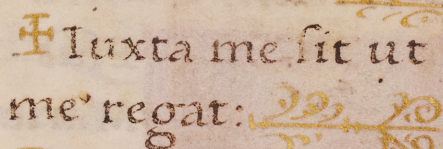 ✠ Iuxta me sit ut
me regat: